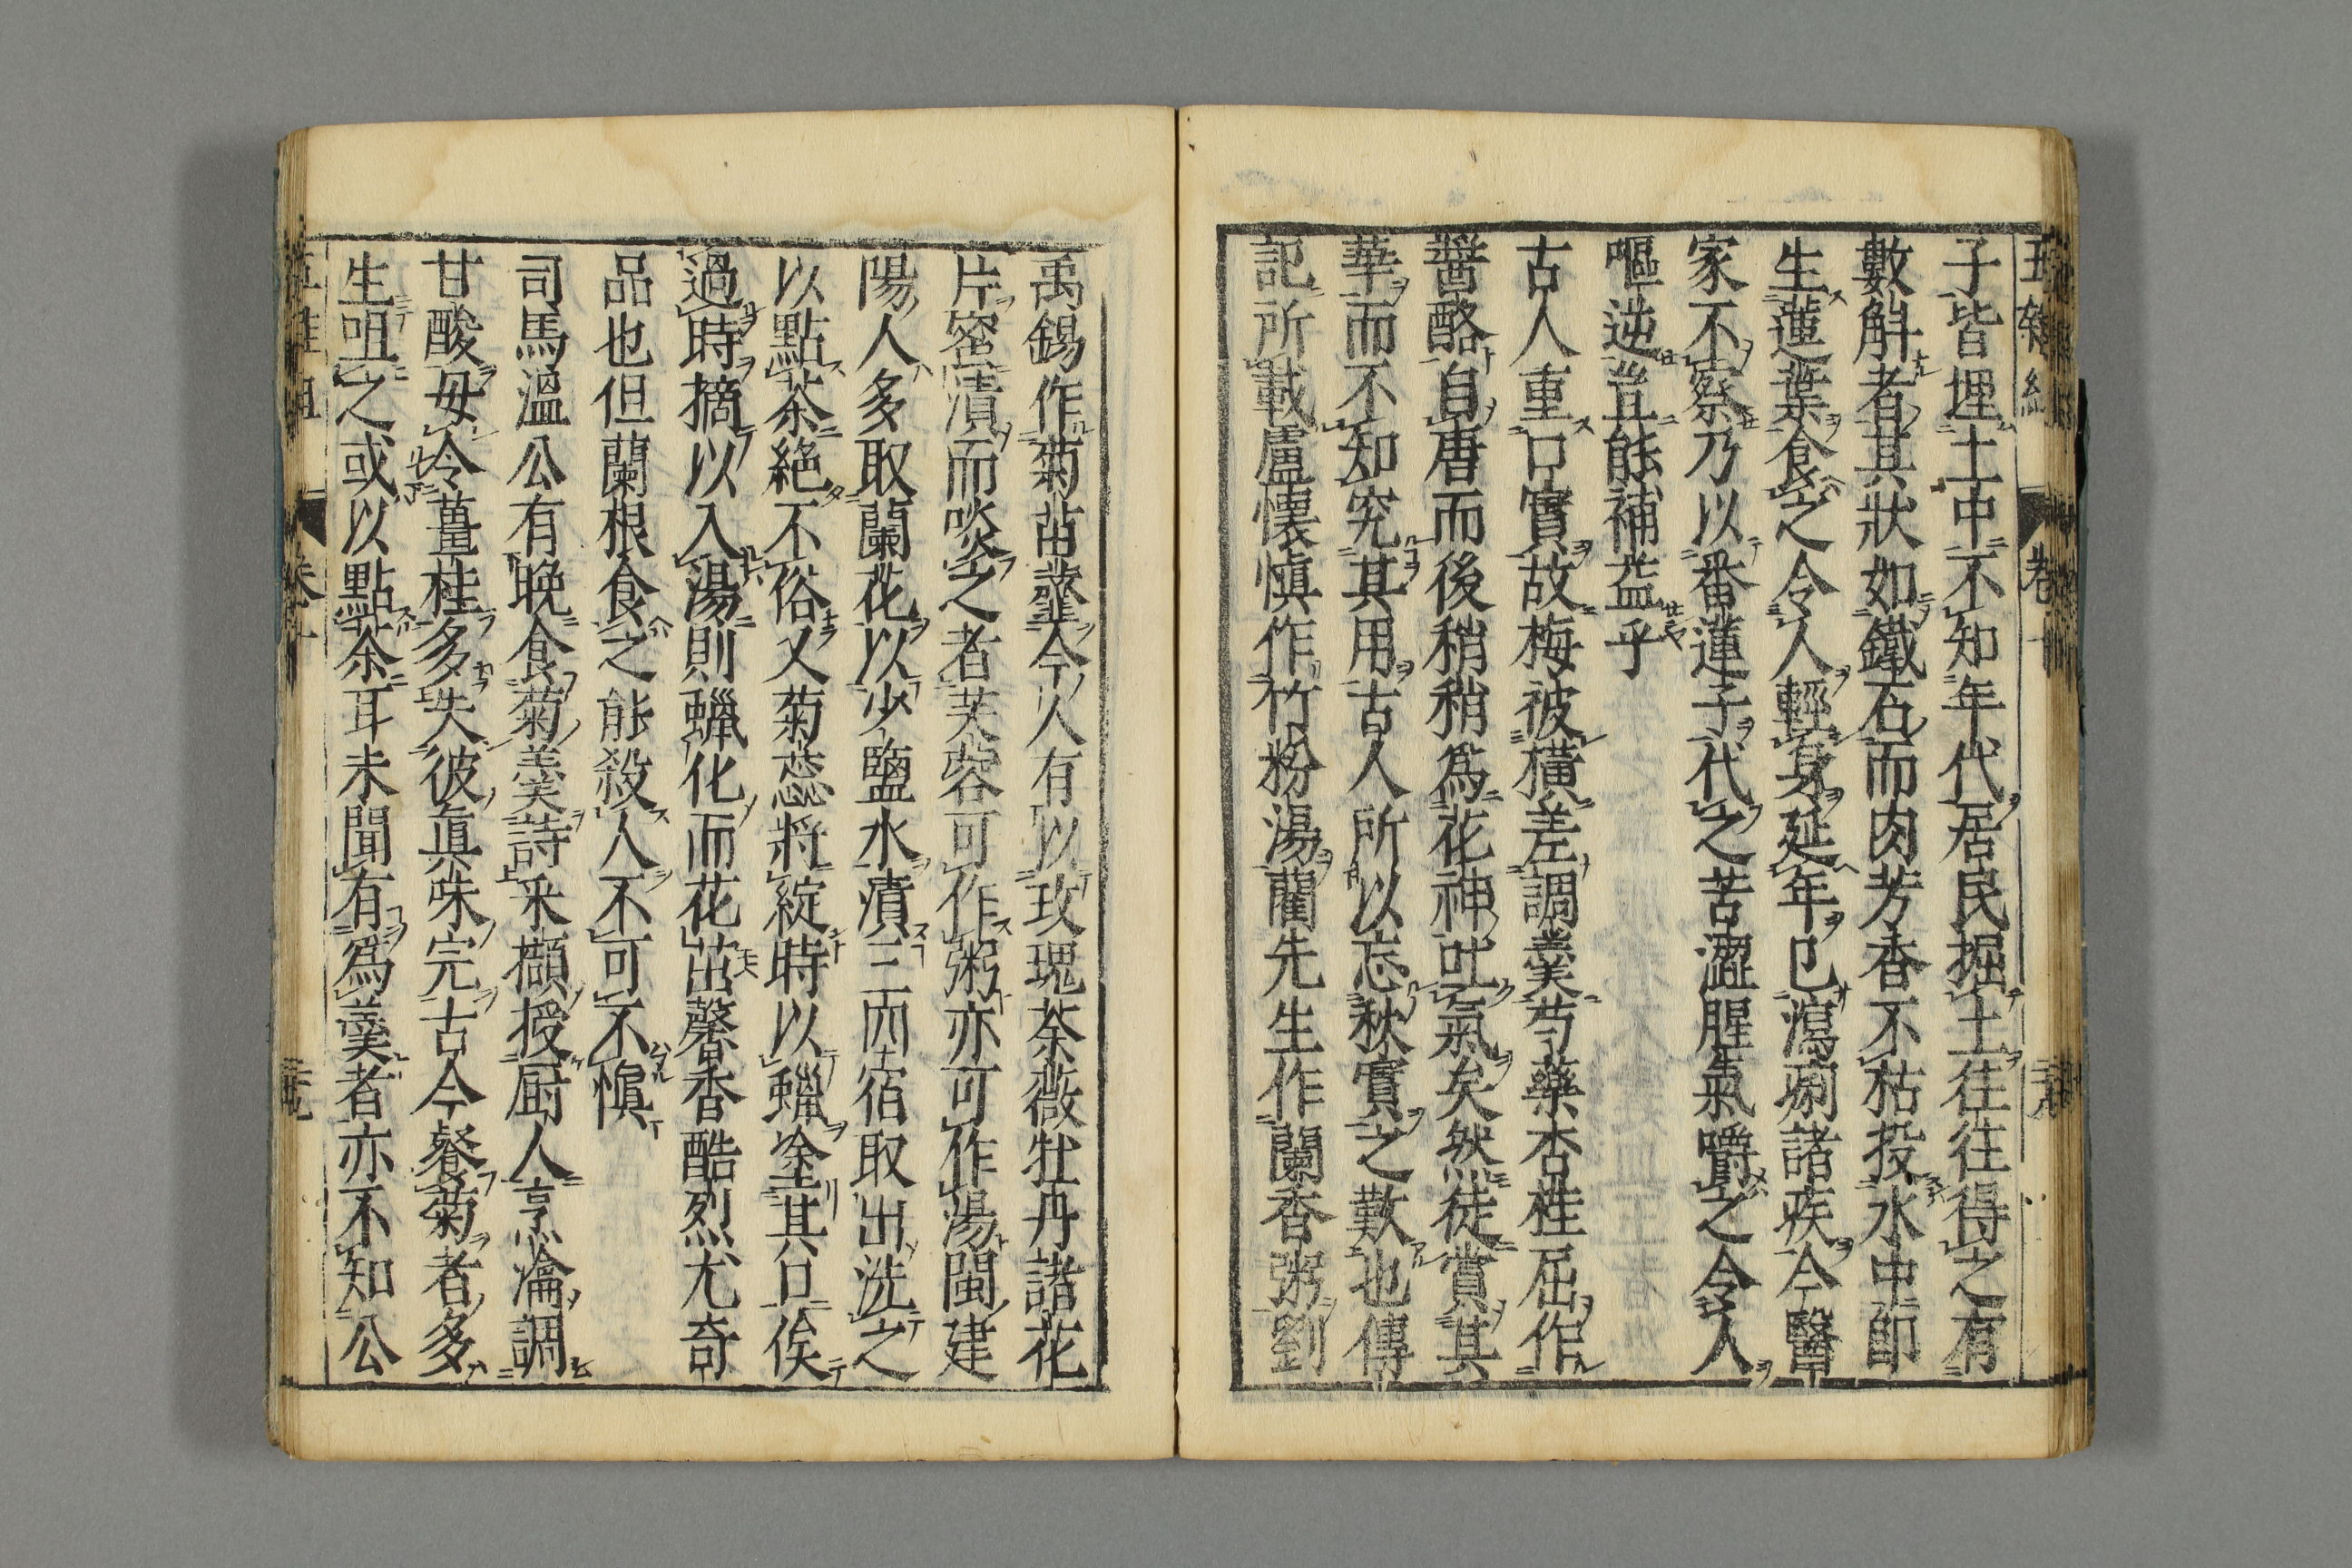 子皆埋土中不知年代居民掘土往往得之有
數斛者其狀如鐵石而肉芳香不枯投水中即
生蓮葉食之令人輕身延年已瀉痢諸疾今醫
家不察乃以番蓮子代之苦澀腥氣嚼之令人
嘔逆豈能補益乎
古人重口實故梅被橫差調羹芍藥杏桂屈作
醬酪自唐而後稍稍爲花神吐氣矣然徒賞其
華而不知究其用古人所以忘秋實之歎也傳
記所載盧懷愼作竹粉湯藺先生作蘭香粥劉
禹錫作菊苗虀今人有以玫瑰荼薇牡丹諸花
片蜜漬而啖之者芙蓉可作粥亦可作湯閩建
陽人多取蘭花以少鹽水漬三四宿取出洗之
以點茶絕不俗又菊蕊將綻時以蠟塗其口俟
過時摘以入湯則蠟化而花茁馨香酷烈尤奇
品也但蘭根食之能殺人不可不愼
司馬溫公有晚食菊羹詩采擷授厨人烹瀹調
甘酸毋令薑桂多失彼眞味完古今餐菊者多
生咀之或以點茶耳未聞有爲羹者亦不知公
卷十